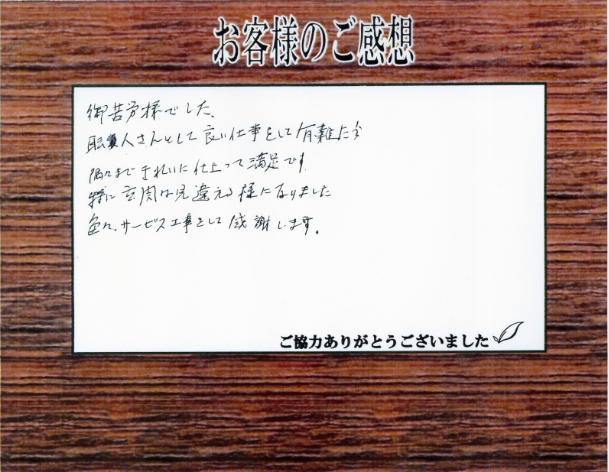 お客様のご感想
御苦労様でした、
職人さんとして良い仕事をして有難たう
隅々まできれいに仕上って満足です
特に玄関は見違える様になりました
色々、サービス工事をして感謝します。
ご協力ありがとうございました